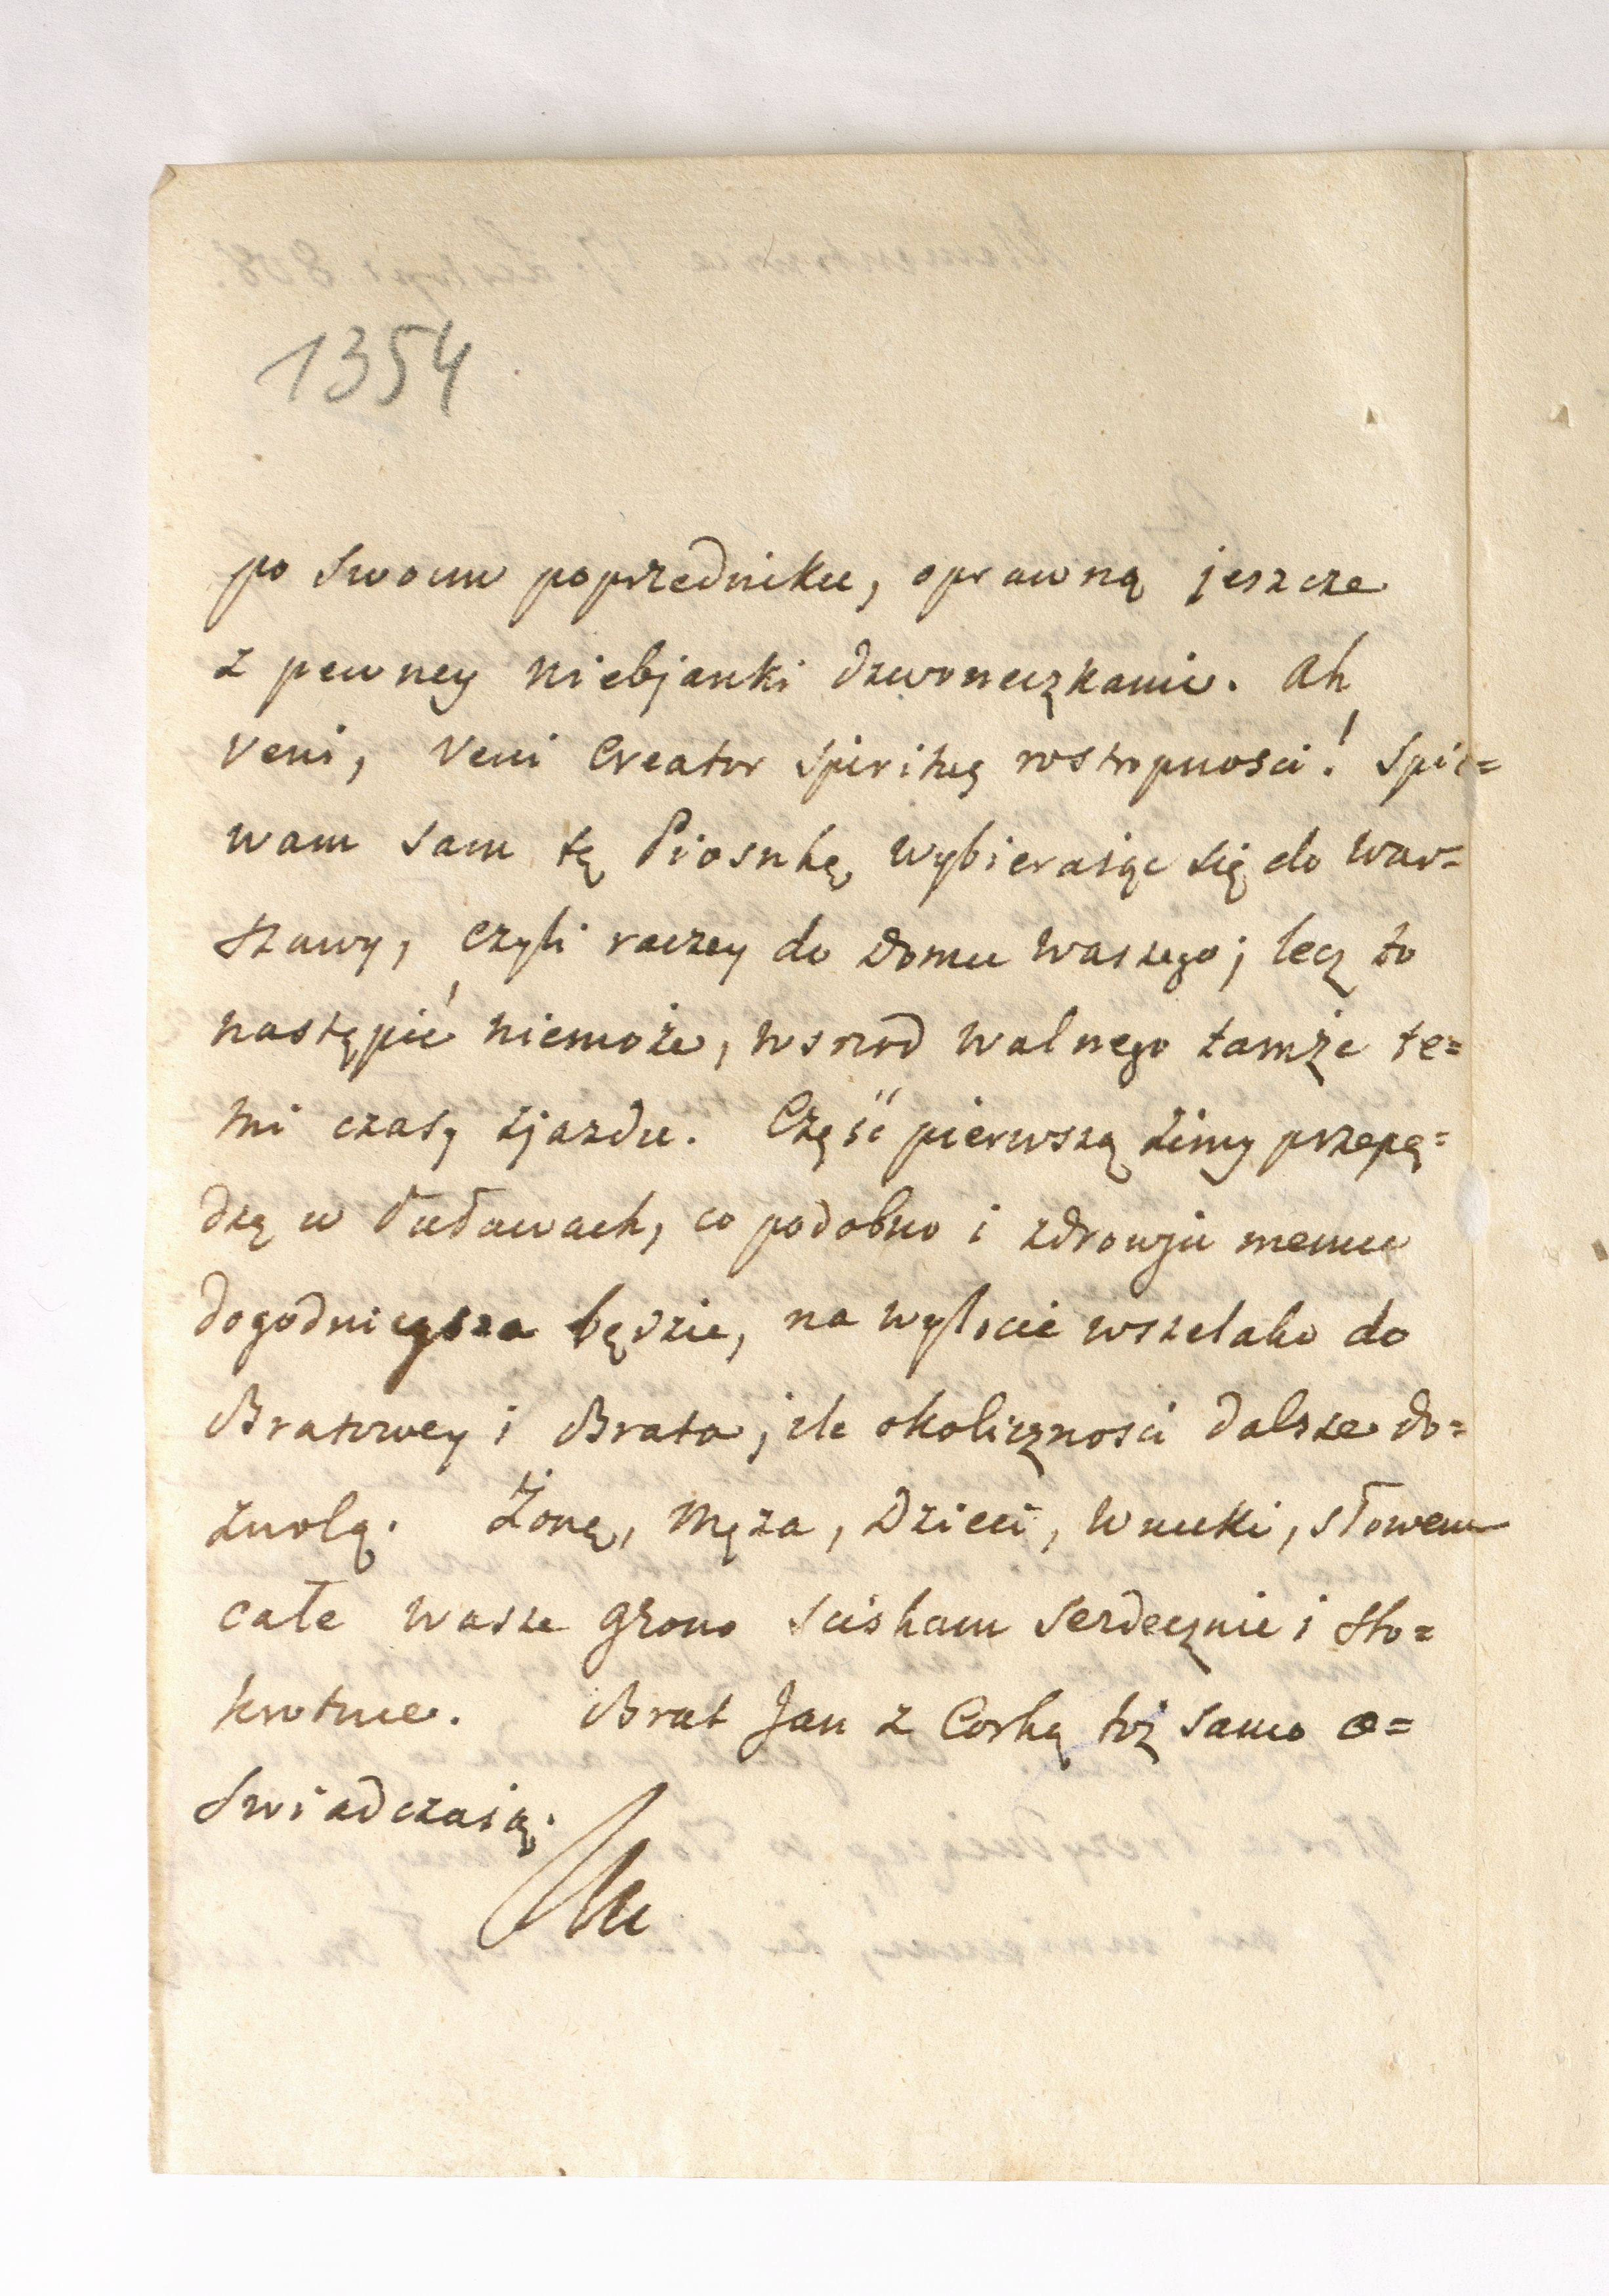 1354
po swoim poprzedniku, oprawną jeszcze
z pewney niebjanki dzwoneczkami. Ah
veni, veni Creator Spiritus rostropnosci! Spie=
wam sam tę Piosnkę, wybierasiąc się do War=
szawy, czyli raczey do Domu waszego; lecz to
nastąpić niemoże, wsrzod walnego tamże te=
mi czasy zjazdu. Część pierwszą zimy przepę=
dzę w Puławach, co podobno i zdrowju memu
dogodnieysza będzie, na wylocie wszelako do
Bratowey i Brata, ile okolicznosci dalsze do=
zwolą. Żonę, Męża, Dzieci, Wnuki, słowem
całe wasze grono sciskam serdecznie i sto=
krotnie. Brat Jan z Corką toż samo o=
swiadczaią.